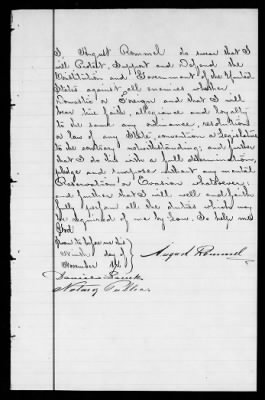 I, August Rommel do swear that I
will Protect, Support and Defend the
Constitution and Government of the United
States against all enemies whether
Domestic or Foreign and that I will
bear true faith, allegiance and loyalty
to the same any ordinance, resolution
or law of any State, convention or Legislature
to the contrary notwithstanding; and further
that I do this with a full determination,
pledge and purpose without any mental
Reservation or Evasion whatsoever;
and further that I will well and faith
fully perform all the duties which may
be required of me by Law. So help me
God
Sworn to before me this
day of
November
August Rommel
Notary Public